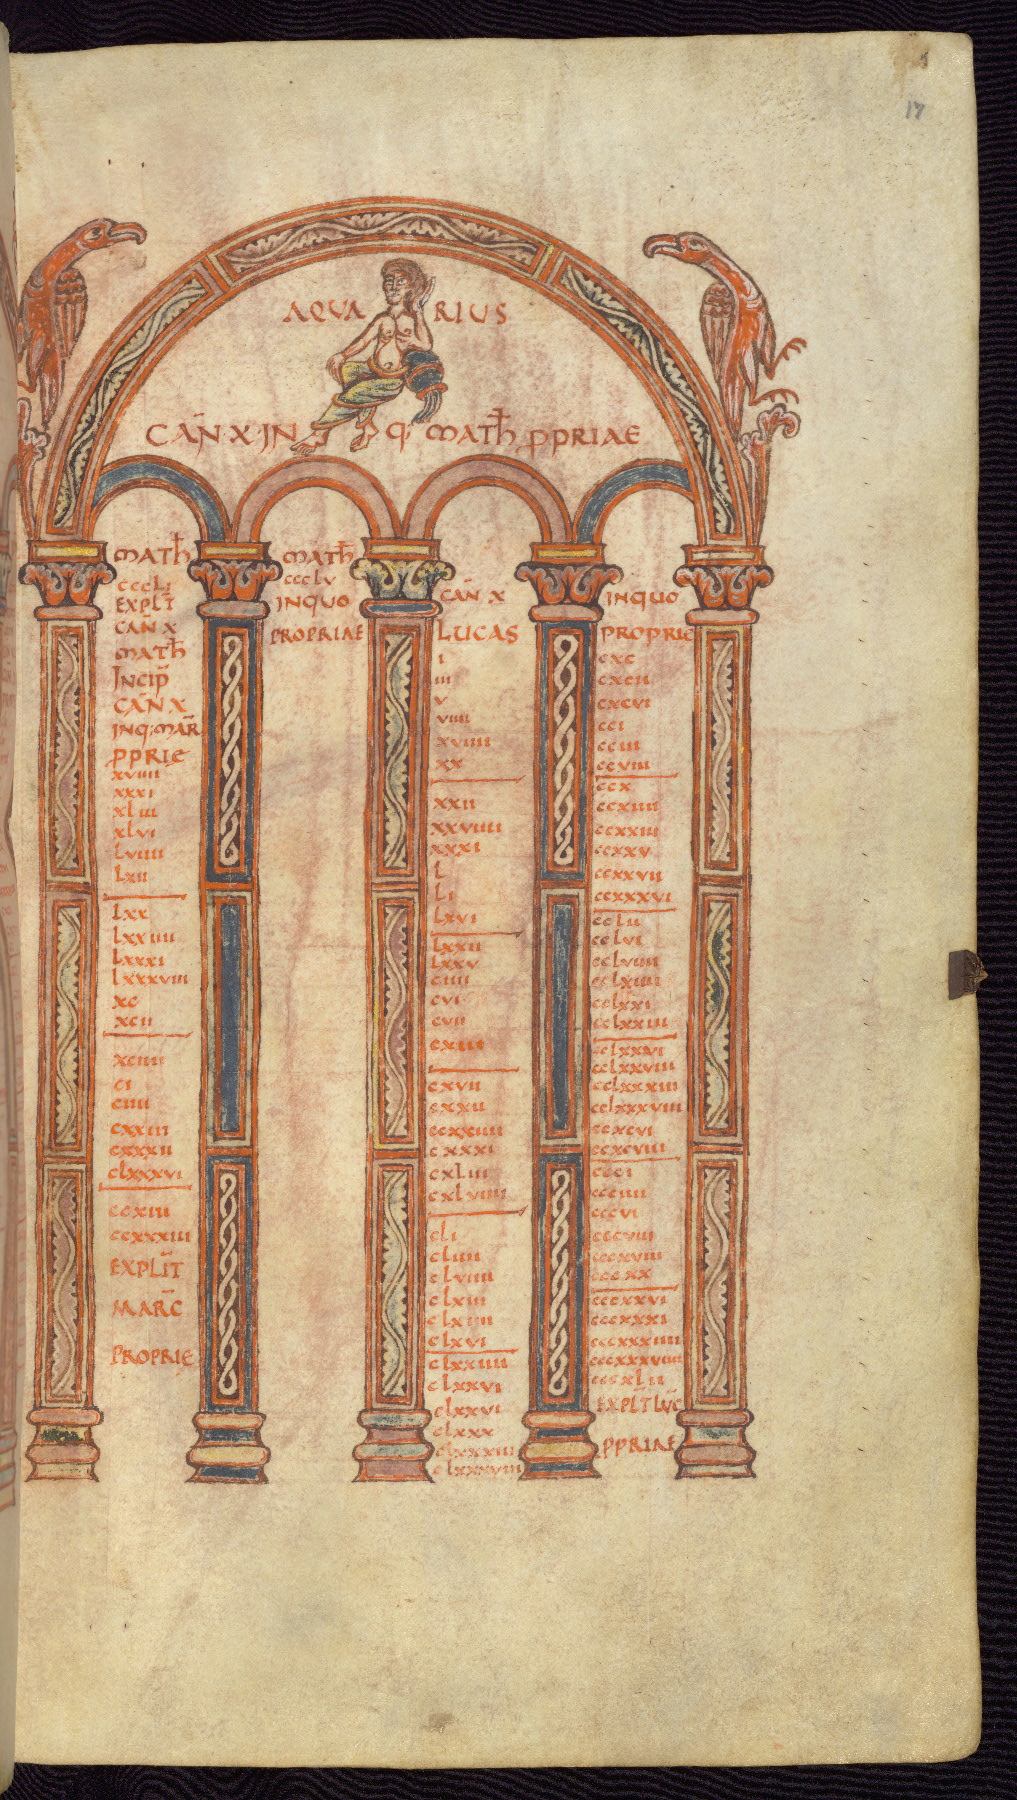 17
AQUARIUS
CAÑ X IN Q; MATH̄ PPRIAE
MATH̄
cccli
EXPLĪT
CAÑ X
MATH̄
INCIP̄
CAÑ X
INQ; MAR̄
PPRIE
xviiii
xxxi
xliii
xlvi
lviiii
lxii
lxx
lxxiiii
lxxxi
lxxxviii
xc
xcii
xciiii
ci
ciiii
cxxiii
cxxxii
clxxxvi
ccxiii
ccxxxiii
EXPLĪT
MARC̄
PROPRIE
MATH̄
ccclv
INQUO
PROPRIAE
CAÑ X
LUCAS
i
iii
v
viiii
xviiii
xx
xxii
xxviiii
xxxi
l
li
lxvi
lxxii
lxxv
ciiii
cvi
cvii
cxiii
cxvii
cxxii
ccxxiiii
cxxxi
cxliii
cxlviiii
cli
cliiii
clviiii
clxiii
clxiiii
clxvi
clxxiiii
clxxvi
clxxvi
clxxx
clxxxiii
clxxxviii
INQUO
PROPRIE
cxc
cxcii
cxcvi
cci
cciii
ccviii
ccx
ccxiiii
ccxxiii
ccxxv
ccxxvii
ccxxxvi
cclii
cclvi
cclviiii
cclxiiii
cclxxi
cclxxiii
cclxxvi
cclxxviii
cclxxxiii
cclxxxviii
ccxcvi
ccxcviii
ccci
ccciiii
cccvi
cccviii
cccxviii
cccxx
cccxxvi
cccxxxi
cccxxxiiii
cccxxxviiii
cccxlii
EXPLĪT LUC̄
PPRIAE